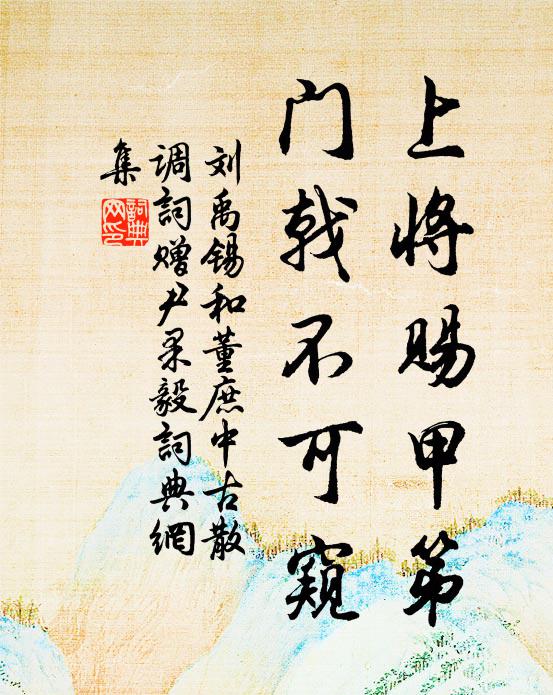 上将赐甲第
门戟不可窥
刘禹锡和董庶中古散
调詞赠尹果毅詞典網
集
詞典
网印